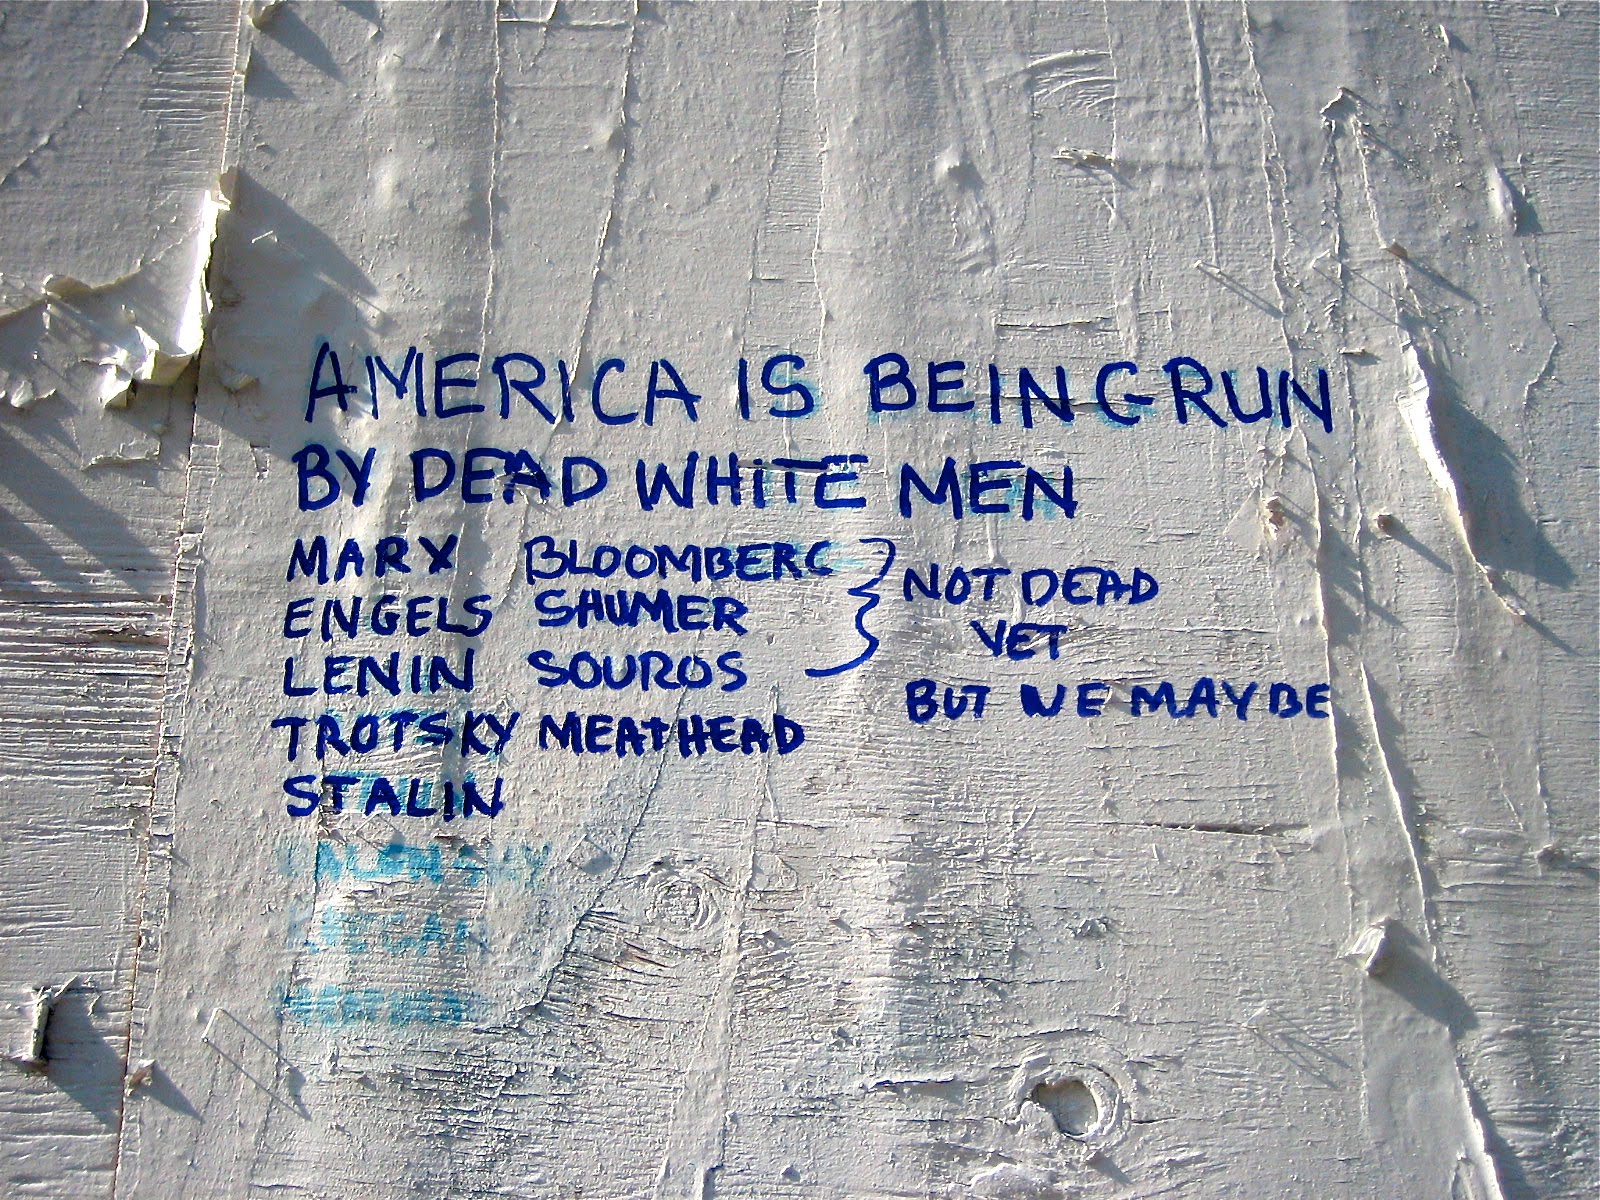 AMERICA IS BEING RUN
BY DEAD WHITE MEN
MARX BLOOMBERG NOT DEAD
ENGELS SHUMER YET
LENIN SOUROS BUT WE MAY BE
TROTSKY MEATHEAD
STALIN